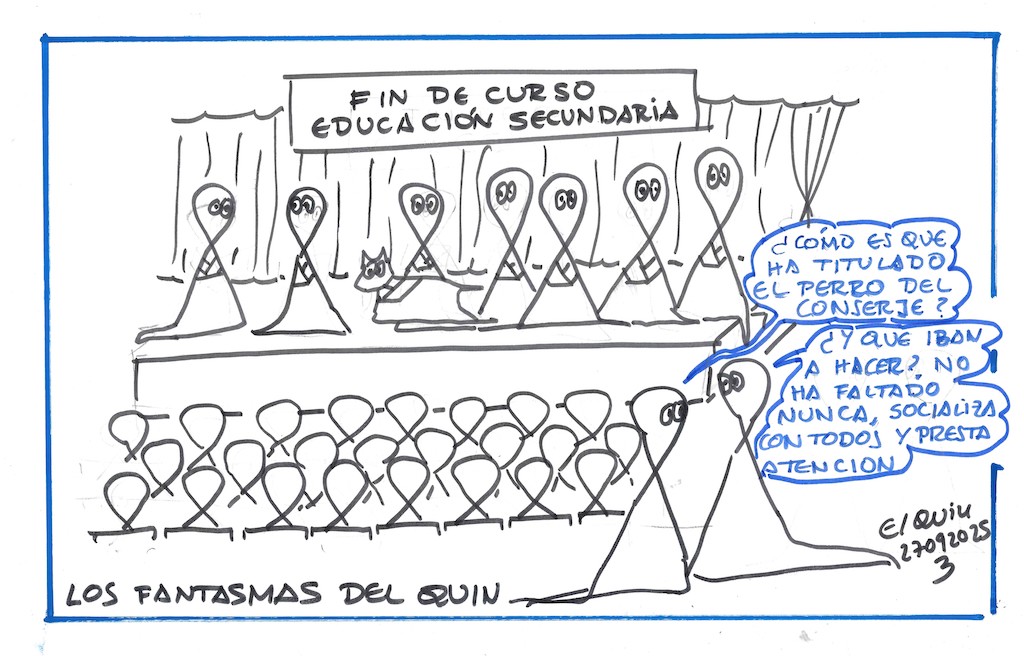 FIN DE CURSO
EDUCACIÓN SECUNDARIA
¿CÓMO ES QUE
HA TITULADO
EL PERRO DEL
CONSERJE?
¿Y QUE IBAN
A HACER?, NO
HA FALTADO
NUNCA, SOCIALIZA
CON TODOS Y PRESTA
ATENCION
El QUIN
27092025
3
LOS FANTASMAS DEL QUIN